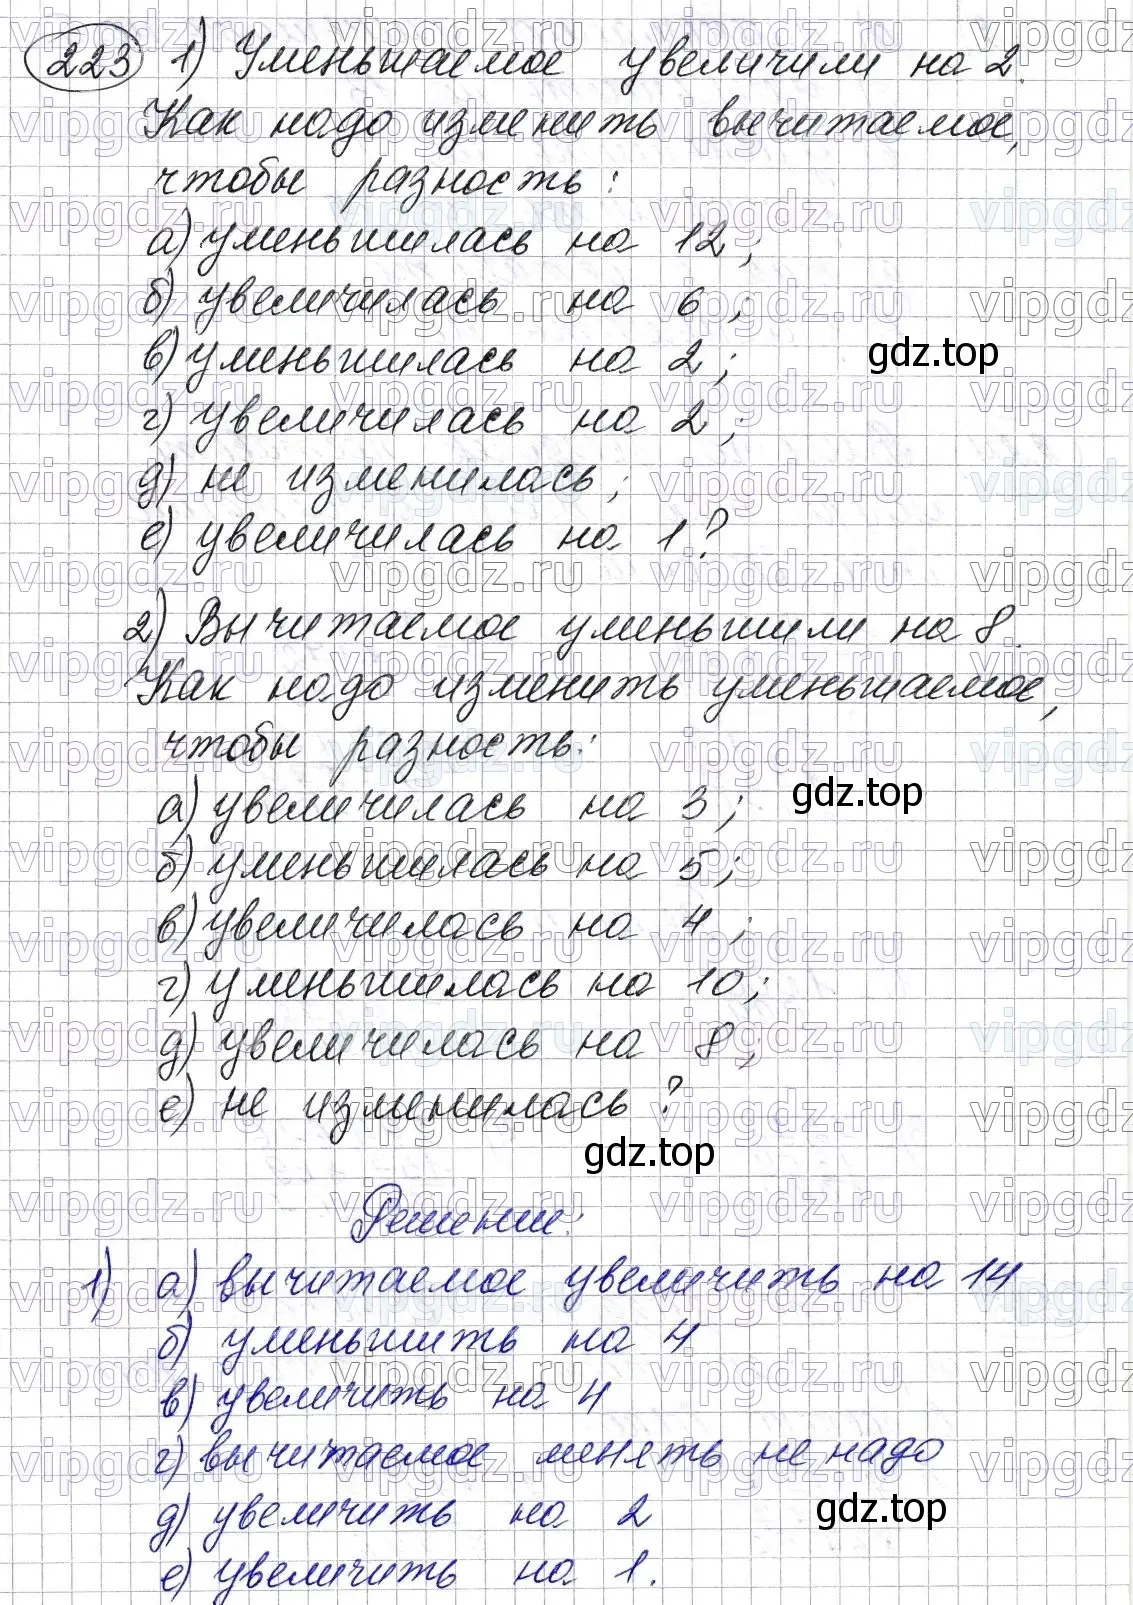 223 1) Уменьшаемое увеличили на 2.
Как надо изменить вычитаемое,
чтобы разность:
а) уменьшилась на 12;
б) увеличилась на 6;
в) уменьшилась на 2;
gdz.top
г) увеличилась на 2;
д) не изменилась;
е) увеличилась на 1?
2) Вычитаемое уменьшили на 8.
Как надо изменить уменьшаемое,
чтобы разность:
а) увеличилась на 3;
gdz.top
б) уменьшилась на 5;
в) увеличилась на 4;
г) уменьшилась на 10;
д) увеличилась на 8;
е) не изменилась?
gdz.top
Решение:
1) а) вычитаемое увеличить на 14
б) уменьшить на 4
в) увеличить на 4
г) вычитаемое менять не надо
д) увеличить на 2
gdz.top
е) увеличить на 1.